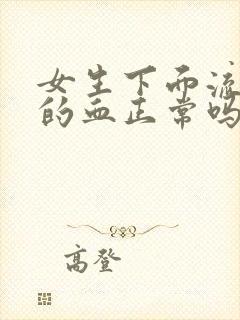 女生下面流
的血正常吗
高登